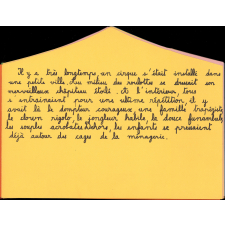 Il y a très longtemps, un cirque s'était installé dans
une petite ville. Au milieu des roulottes se dressait son
merveilleux chapiteau étoilé. A l'intérieur, tous
s'entrainaient pour une ultime répétition, il y
avait là le dompteur courageux, une famille trapéziste,
le clown rigolo, le jongleur habile, la douce funambule,
les souples acrobates. Dehors, les enfants se pressaient
déjà autour du cages de la ménagerie.